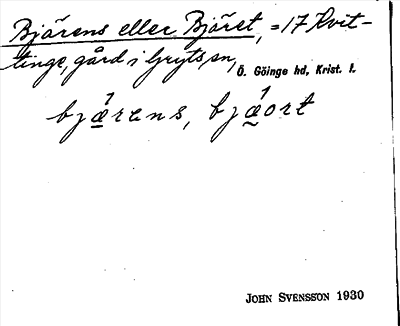 Bjärens eller Bjäret, = 17 Kvit-
tinge, gård i Gryts sn,
Ö. Göinge hd, Krist. l.
bjä́rens, bjä́ort
JOHN SVENSSON 1930